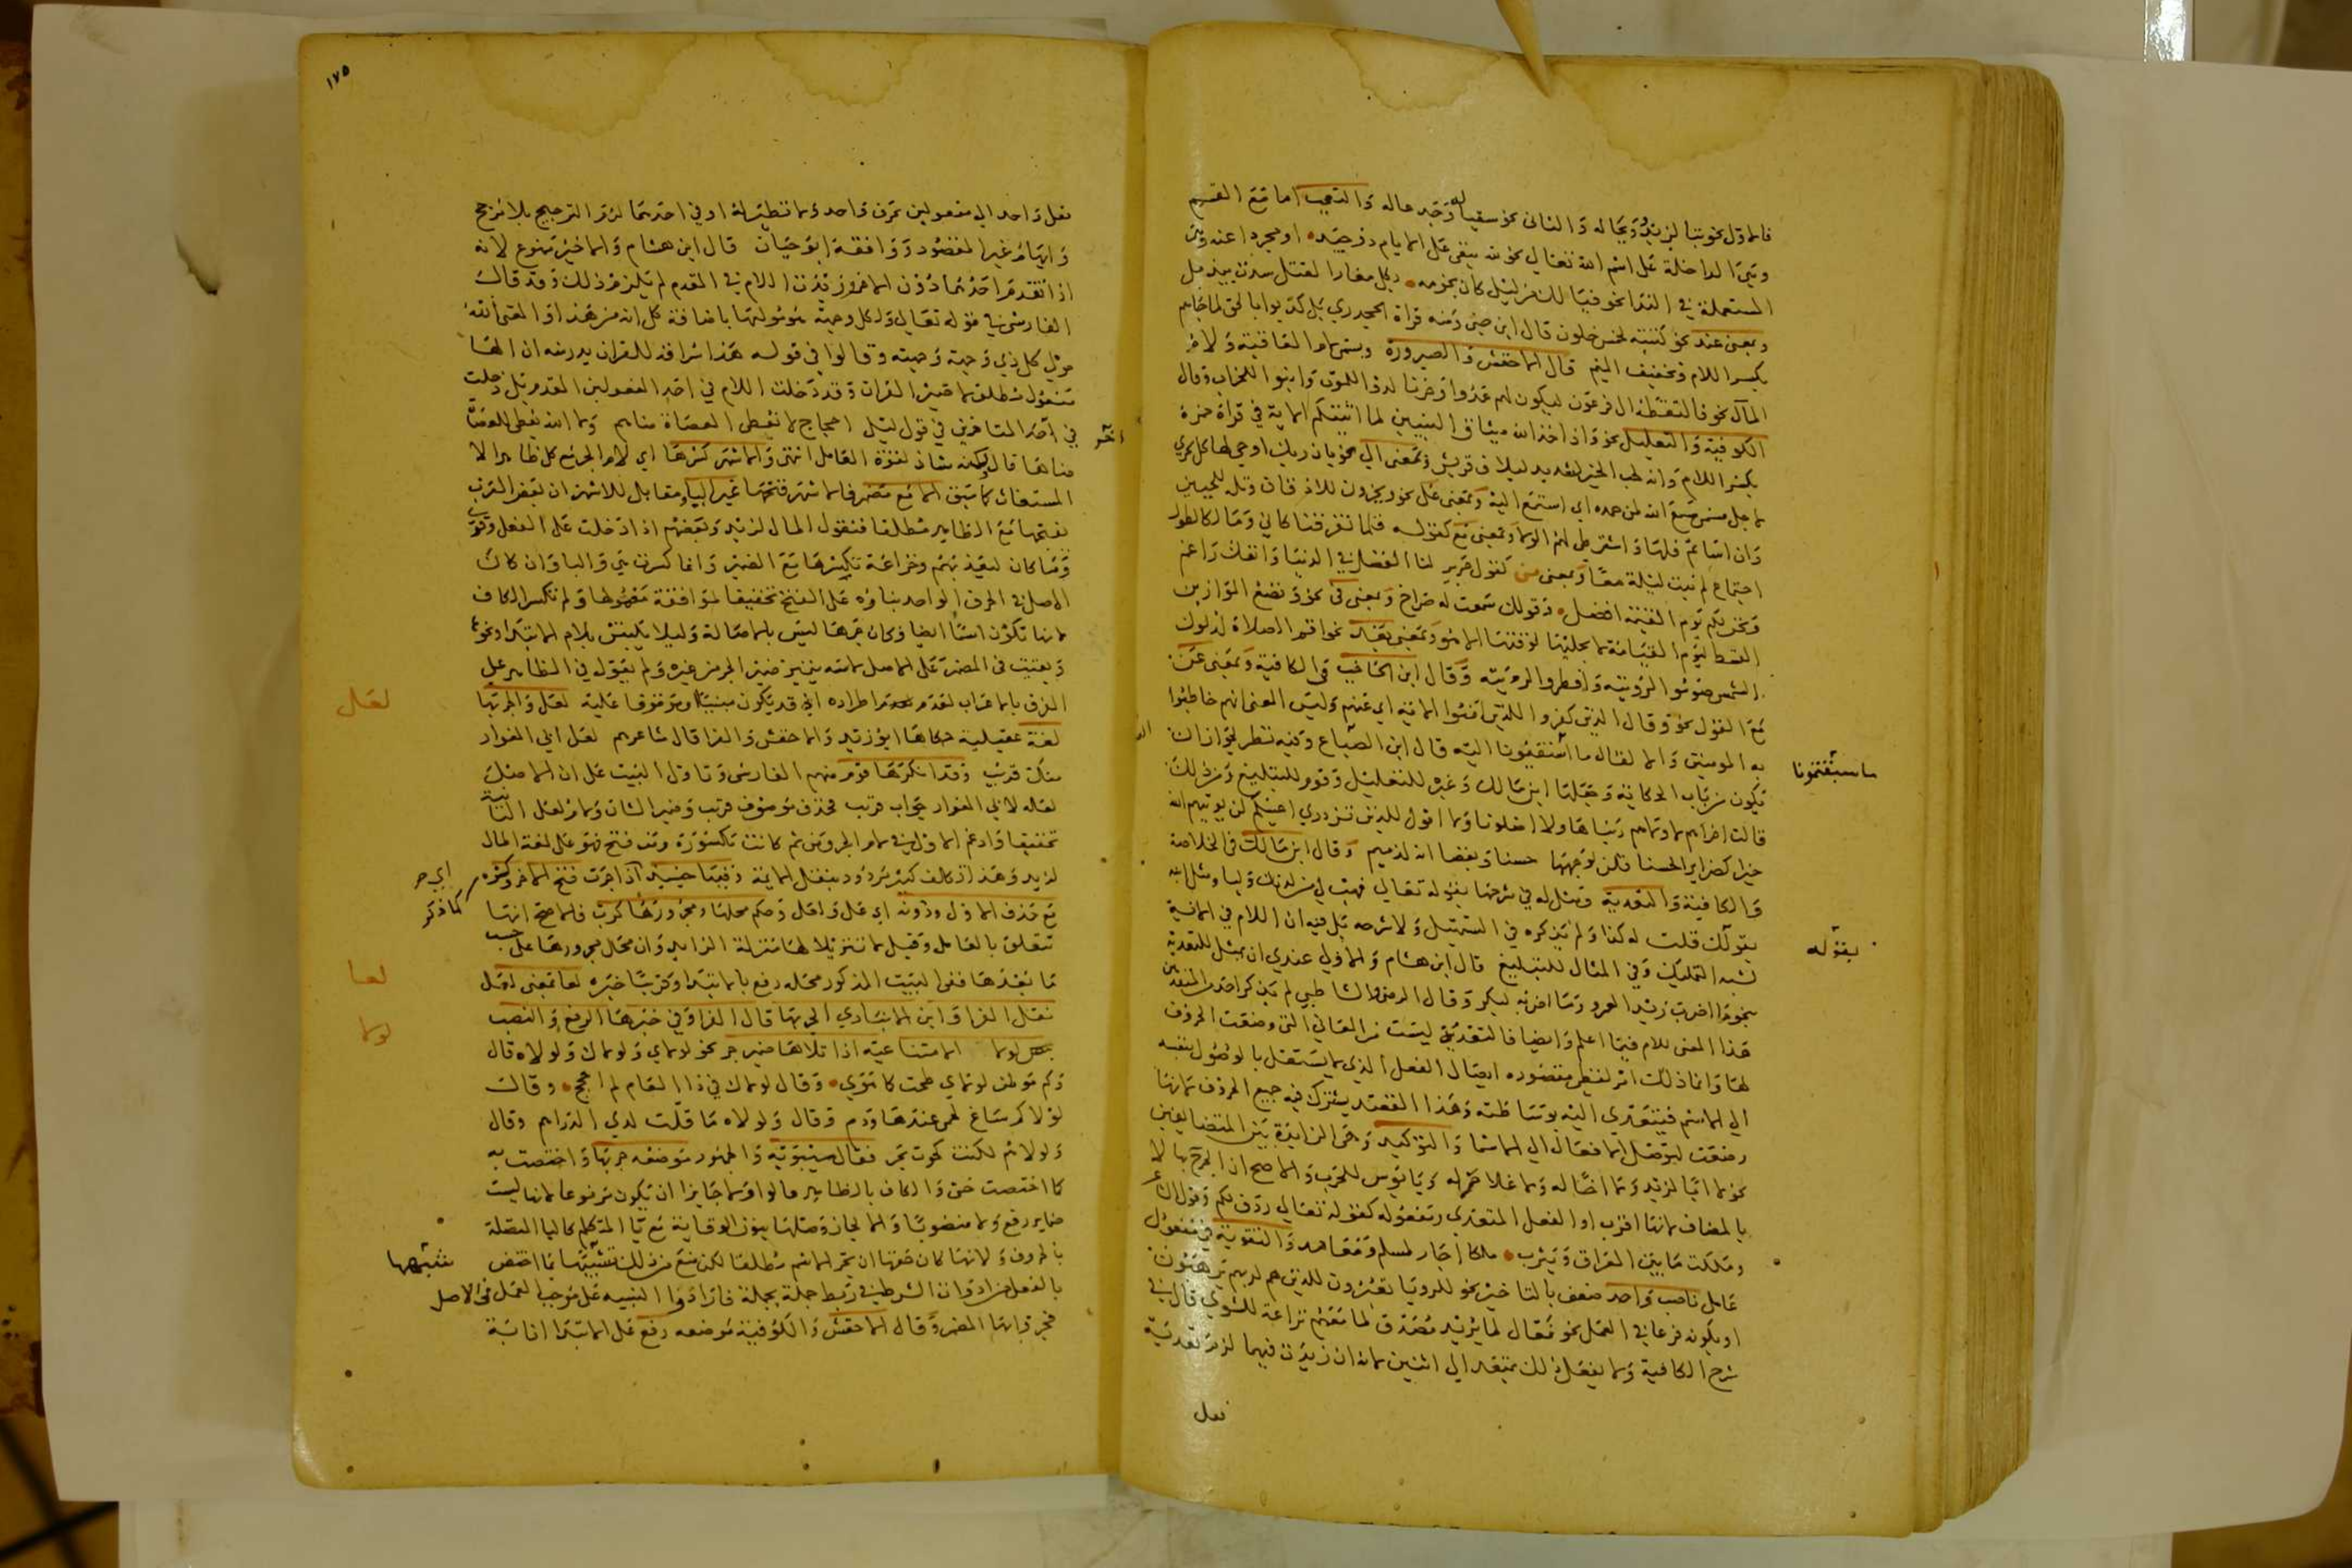 فالاول نحو تبا لزيد وويحا له والثاني نحو سقيا له وجدعا له والتعجب اما مع القسم
وهي الداخلة على اسم الله تعالى نحو لله يبقى على الايام ذو حيد او مجردا عنه وهي
المستعملة في الندا نحو فيا لك من ليل كان نجومه بكل مغار الفتل شدت بيذبل
وبمعنى عند نحو كتبته لخمس خلون قال ابن جني ومنه قراة الجحدري بل كذبوا بالحق لما جاهم
بكسر اللام وتخفيف الميم قال الاخفش والصيرورة وتسمى لام العاقبة ولام
المآل نحو فالتقطه ال فرعون ليكون لهم عدوا وحزنا لدوا للموت وابنوا للخراب وقال
الكوفية والتعليل نحو واذ اخذ الله ميثاق النبيين لما اتيتكم الاية في قراة حمزة
بكسر اللام وانه لحب الخير لشديد ليلاف قريش وبمعنى الى نحو بان ربك اوحى لها كل يجري
لاجل مسمى سمع الله لمن حمده اي استمع اليه وبمعنى على نحو ويخرون للاذقان وتله للجبين
وان اسأتم فلها واشترطي لهم الولا وبمعنى مع كقوله فلما تفرقنا كاني ومالكا لطول
اجتماع لم نبت ليلة معا وبمعنى من كقول جرير لنا الفضل في الدنيا وانفك راغم
ونحن لكم يوم القيمة افضل وقولك سمعت له صراخ وبمعنى في نحو ونضع الموازين
القسط ليوم القيامة لا يجليها لوقتها الا هو وبمعنى بعد نحو اقم الصلاة لدلوك
الشمس صوموا لرؤيته وافطروا لرؤيته وقال ابن الحاجب في الكافية وبمعنى عن
مع القول نحو وقال الذين كفروا للذين امنوا الاية اي عنهم وليس المعنى انهم خاطبوا
به المومنين والا لقال ما سبقتمونا اليه قال ابن الصباع وفيه نظر لجواز ان
يكون من باب الحكاية وجعلها ابن مالك وغيره للتعليل وقوم للتبليغ ومن ذلك
قالت اخراهم لاولاهم ربنا هاولا اضلونا ولا اقول للذين تزدري اعينكم لن يوتيهم الله
خيرا كضراير الحسنا قلن لوجهها حسدا وبغضا انه لذميم وقال ابن مالك في الخلاصة
والكافية والتعدية ومثل له في شرحها بقوله تعالى فهب لي من لدنك وليا ومثل ابنه
بقولك قلت له كذا ولم يذكره في التسهيل ولا شرحه بل فيه ان اللام في الاية
لشبه التمليك وفي المثال للتبليغ قال ابن هشام والاولى عندي ان يمثل للتعدية
بنحو ما اضرب زيدا لعمرو وما احبه لبكر وقال الرضي والشاطبي لم يذكر احد من المتقدمين
هذا المعنى للام فيما اعلم وايضا فالتعدية ليست من المعاني التي وضعت الحروف
لها وانما ذلك امر لفظي مقصوده ايصال الفعل الذي لا يستقل بالوصول بنفسه
الى الاسم فيتعدى اليه بوساطته وهذا القصد يشترك فيه جميع الحروف لانها
وضعت لتوصل الافعال الى الاسما والتوكيد وهي الزايدة بين المتضايفين
نحو لا ابا لزيد ولا اخا له ولا غلامي له ويا بؤس للحرب والاصح ان الجر بها لا
بالمضاف لانها اقرب او الفعل المتعدي ومفعوله كقوله تعالى ردف لكم وقول الشاعر
وملكت ما بين العراق ويثرب ملكا اجار لمسلم ومعاهد والتقوية في مفعول
عامل ناصب واحد ضعف بالتاخير نحو للرويا تعبرون للذين هم لربهم يرهبون
او بكونه فرعا في العمل نحو فعال لما يريد مصدقا لما معهم نزاعة للشوى قال في
شرح الكافية ولا يفعل ذلك بمتعد الى اثنين لانه ان زيدت فيهما لزم تعدية
فعل
ما سبقتمونا
بقوله
١٧٥
فعل واحد الى مفعولين بحرف واحد ولا نظير له او في احدهما لزم الترجيح بلا مرجح
وايهام غير المقصود ووافقه ابو حيان قال ابن هشام والاخير ممنوع لانه
اذا تقدم احدهما دون الاخر وزيدت اللام في المقدم لم يلزم ذلك وقد قال
الفارسي في قوله تعالى ولكل وجهة هو موليها باضافة كل انه من هذا والمعنى الله
مولي كل ذي وجهة وجهته وقالوا في قوله هذا سراقة للقران يدرسه ان الها
مفعول مطلق لا ضمير القران وقد دخلت اللام في احد المفعولين المقدم بل دخلت
في احد المتاخرين في قول ليلى احجاج لا تعطي العصاة مناهم ولا الله يعطي للعصاة
مناها قال لكنه شاذ لقوة العامل انتهى والاشهر كسرها اي لام الجر مع كل ظاهر الا
المستغاث كما سبق الا مع مضمر فالاشهر فتحها غير اليا ومقابل للاشهر ان بعض العرب
يفتحها مع الظاهر مطلقا فنقول المال لزيد وبعضهم اذا دخلت على الفعل وقرئ
وما كان ليعذبهم وخزاعة تكسرها مع الضمير وانما كسرت هي والبا وان كان
الاصل في الحرف الواحد بناؤه على الفتح تخفيفا لموافقة معمولها ولم تكسر الكاف
لانها تكون اسما ايضا وكان جرها ليس بالاصالة وليلا يلتبس بلام الابتدا ونحوها
وبقيت في المضمر على الاصل لانه يتميز ضمير الجر من غيره ولم يعول في الظاهر على
الفرق بالاعراب لعدم اطراده اذ قد يكون مبنيا وموقوفا عليه لعل والجر بها
لغة عقيلية حكاها ابو زيد والاخفش والفرا قال شاعرهم لعل ابي المغوار
منك قريب وقد انكرها قوم منهم الفارسي وتاول البيت على ان الاصل
لعله لابي المغوار جواب قريب فحذف موصوف قريب وضمير الشان ولام لعل الثانية
تخفيفا وادغم الاولى في لام الجر ومن ثم كانت مكسورة ومن فتح فهو على لغة المال
لزيد وهذا تكلف كثير مردود بنقل الايمة وفيها حينئذ اذا جرت فتح الاخر وكسره
مع حذف الاول ودونه اي عل ولعل وحكم محلها ومجرورها كرب فالاصح انها
تتعلق بالعامل وقيل لا تنزيلا لها منزلة الزايد وان محل مجرورها على حسب
ما بعدها ففي البيت المذكور محله رفع بالابتدا وقريب خبره لعا بمعنى لعل
نقل الفرا وابن الانباري الجر بها قال الفرا وفي خبرها الرفع والنصب
لولا الامتناعية اذا تلاها ضمير جر نحو لولاي ولولاك ولولاه قال
وكم موطن لولاي طحت كما هوى وقال لولاك في ذا العام لم احجج وقال
لولاكم ساغ لحمي عندها ودم وقال ولولاه ما قلت لدي الدراهم وقال
ولولا هم لكنت كحوت بحر فقال سيبويه والجمهور موضعه جر بها واختصت به
كما اختصت حتى والكاف بالظاهر قالوا ولا جايز ان يكون مرفوعا لانها ليست
ضماير رفع ولا منصوبا والا لجاز وصلها بنون الوقاية مع يا المتكلم كاليا المتصلة
بالحروف ولانها كان حقها ان تجر الاسم مطلقا لكن منع من ذلك شبهها بما اختص
بالفعل من ادوات الشرط في ربط جملة بجملة فارادوا التنبيه على موجب العمل في الاصل
فجر بها المضمر وقال الاخفش والكوفية موضعه رفع على الابتدا انابة
لعل
اي جر
كما ذكر
لعا
لولا
شبهها
آخر